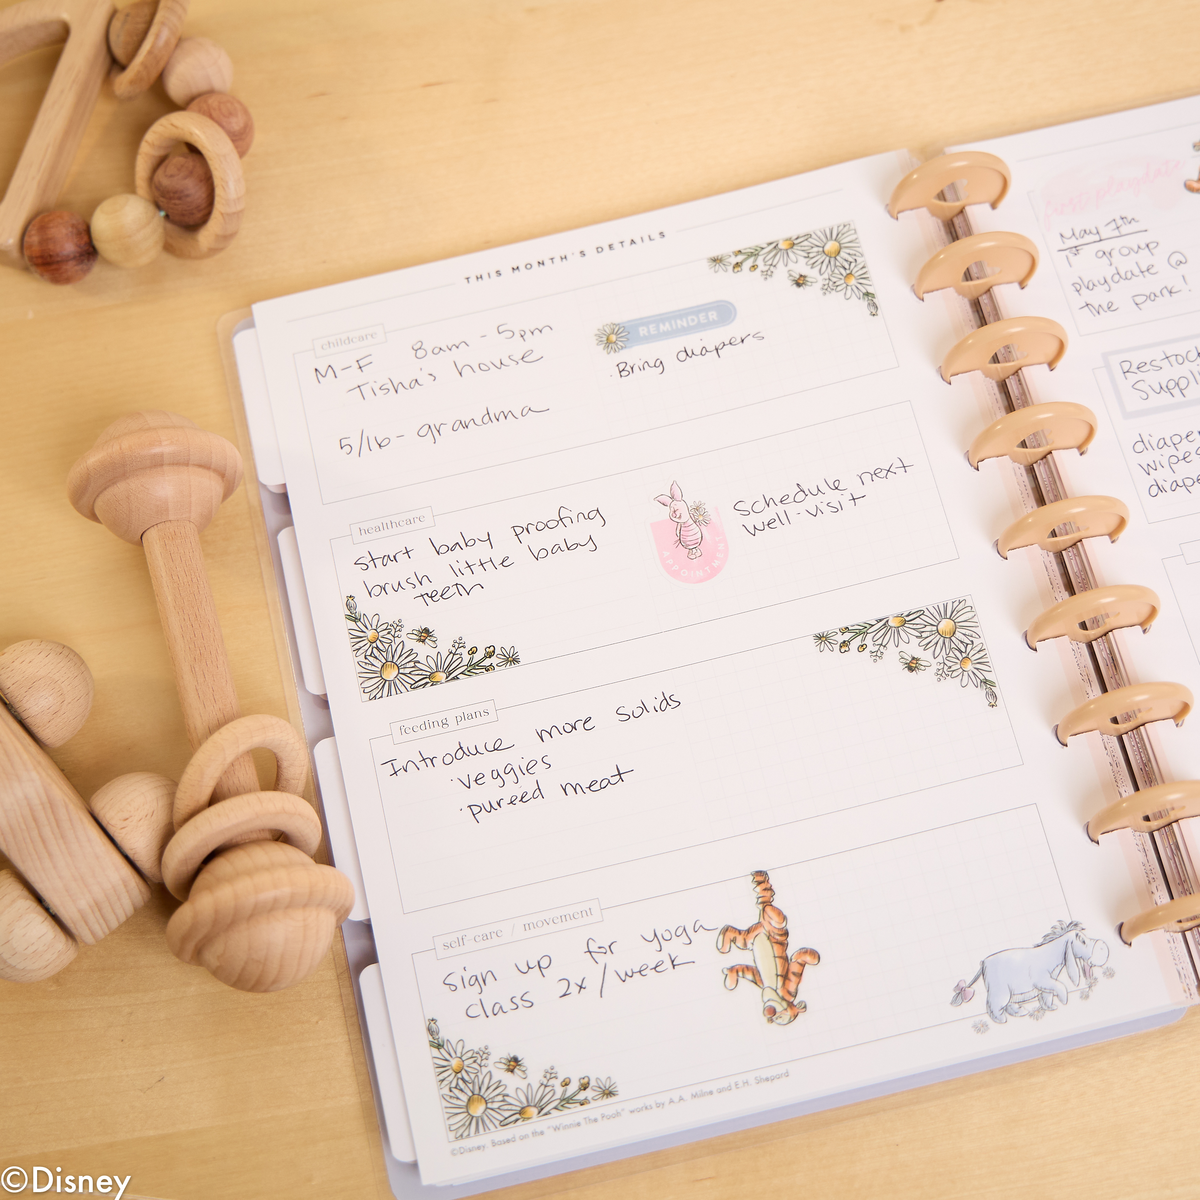 THIS MONTH'S DETAILS
childcare
M-F 8am - 5pm
Tisha's house
5/16 - grandma
REMINDER
· Bring diapers
healthcare
start baby proofing
brush little baby
teeth
APPOINTMENT
Schedule next
well-visit
feeding plans
Introduce more solids
· veggies
· pureed meat
self-care / movement
sign up for yoga
class 2x/week
©Disney. Based on the "Winnie The Pooh" works by A.A. Milne and E.H. Shepard
first playdate
May 7th
1st group
playdate @
the park!
Restock
wipes
©Disney